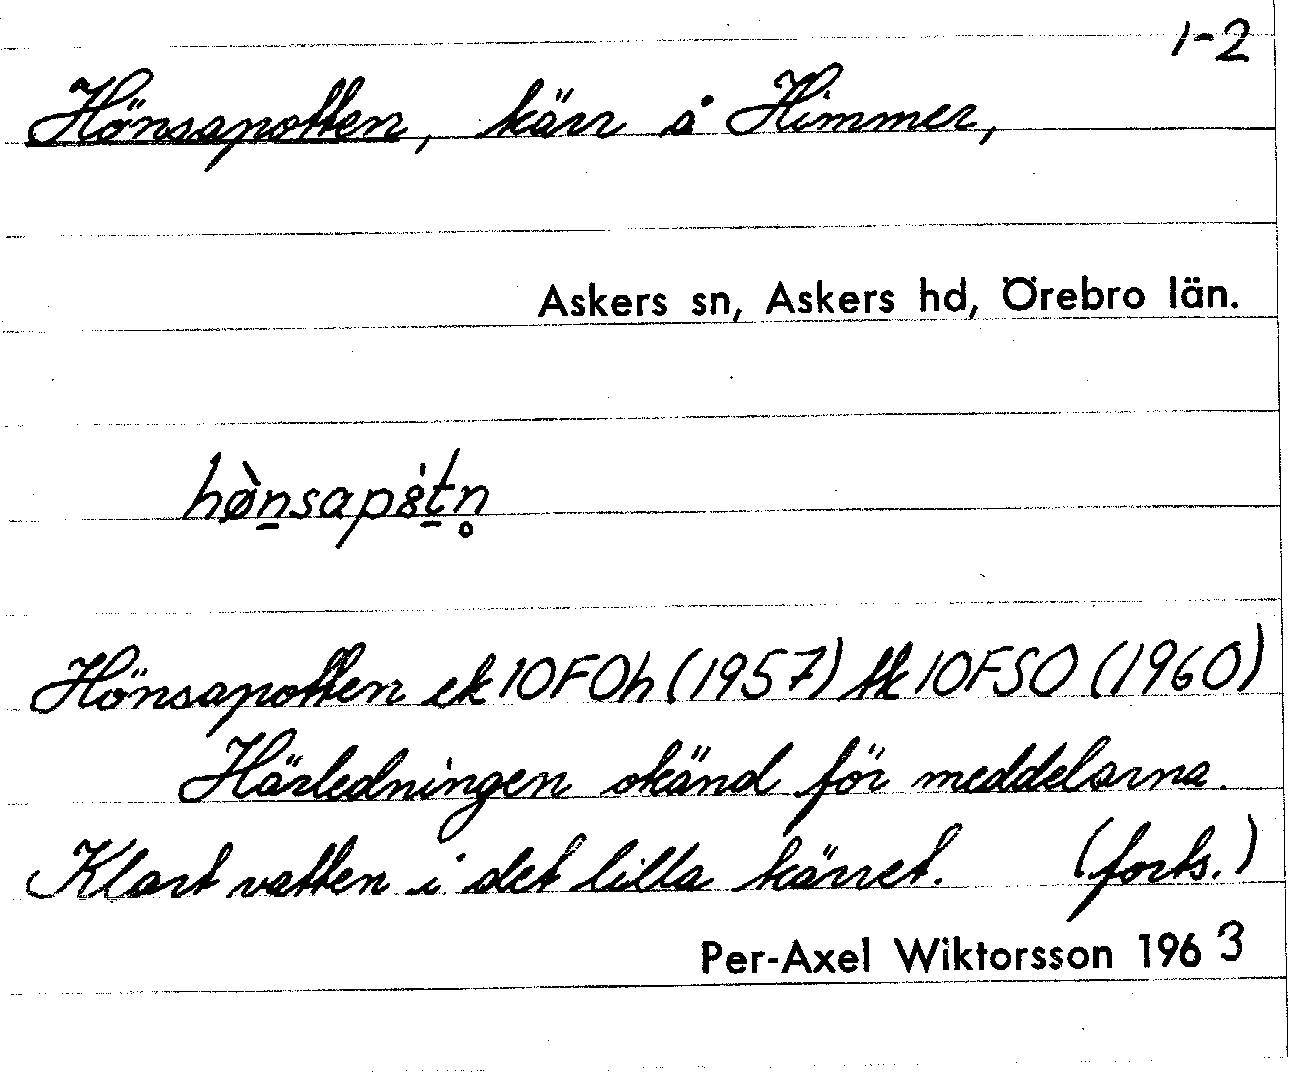 1-2
Hönsapotten, kärr å Himmer,
Askers sn, Askers hd, Örebro län.
Hönsapotten ek 10F0h (1957) tk 10FSO (1960)
Härledningen okänd för meddelarna.
Klart vatten i det lilla kärret. (forts.)
Per-Axel Wiktorsson 1963